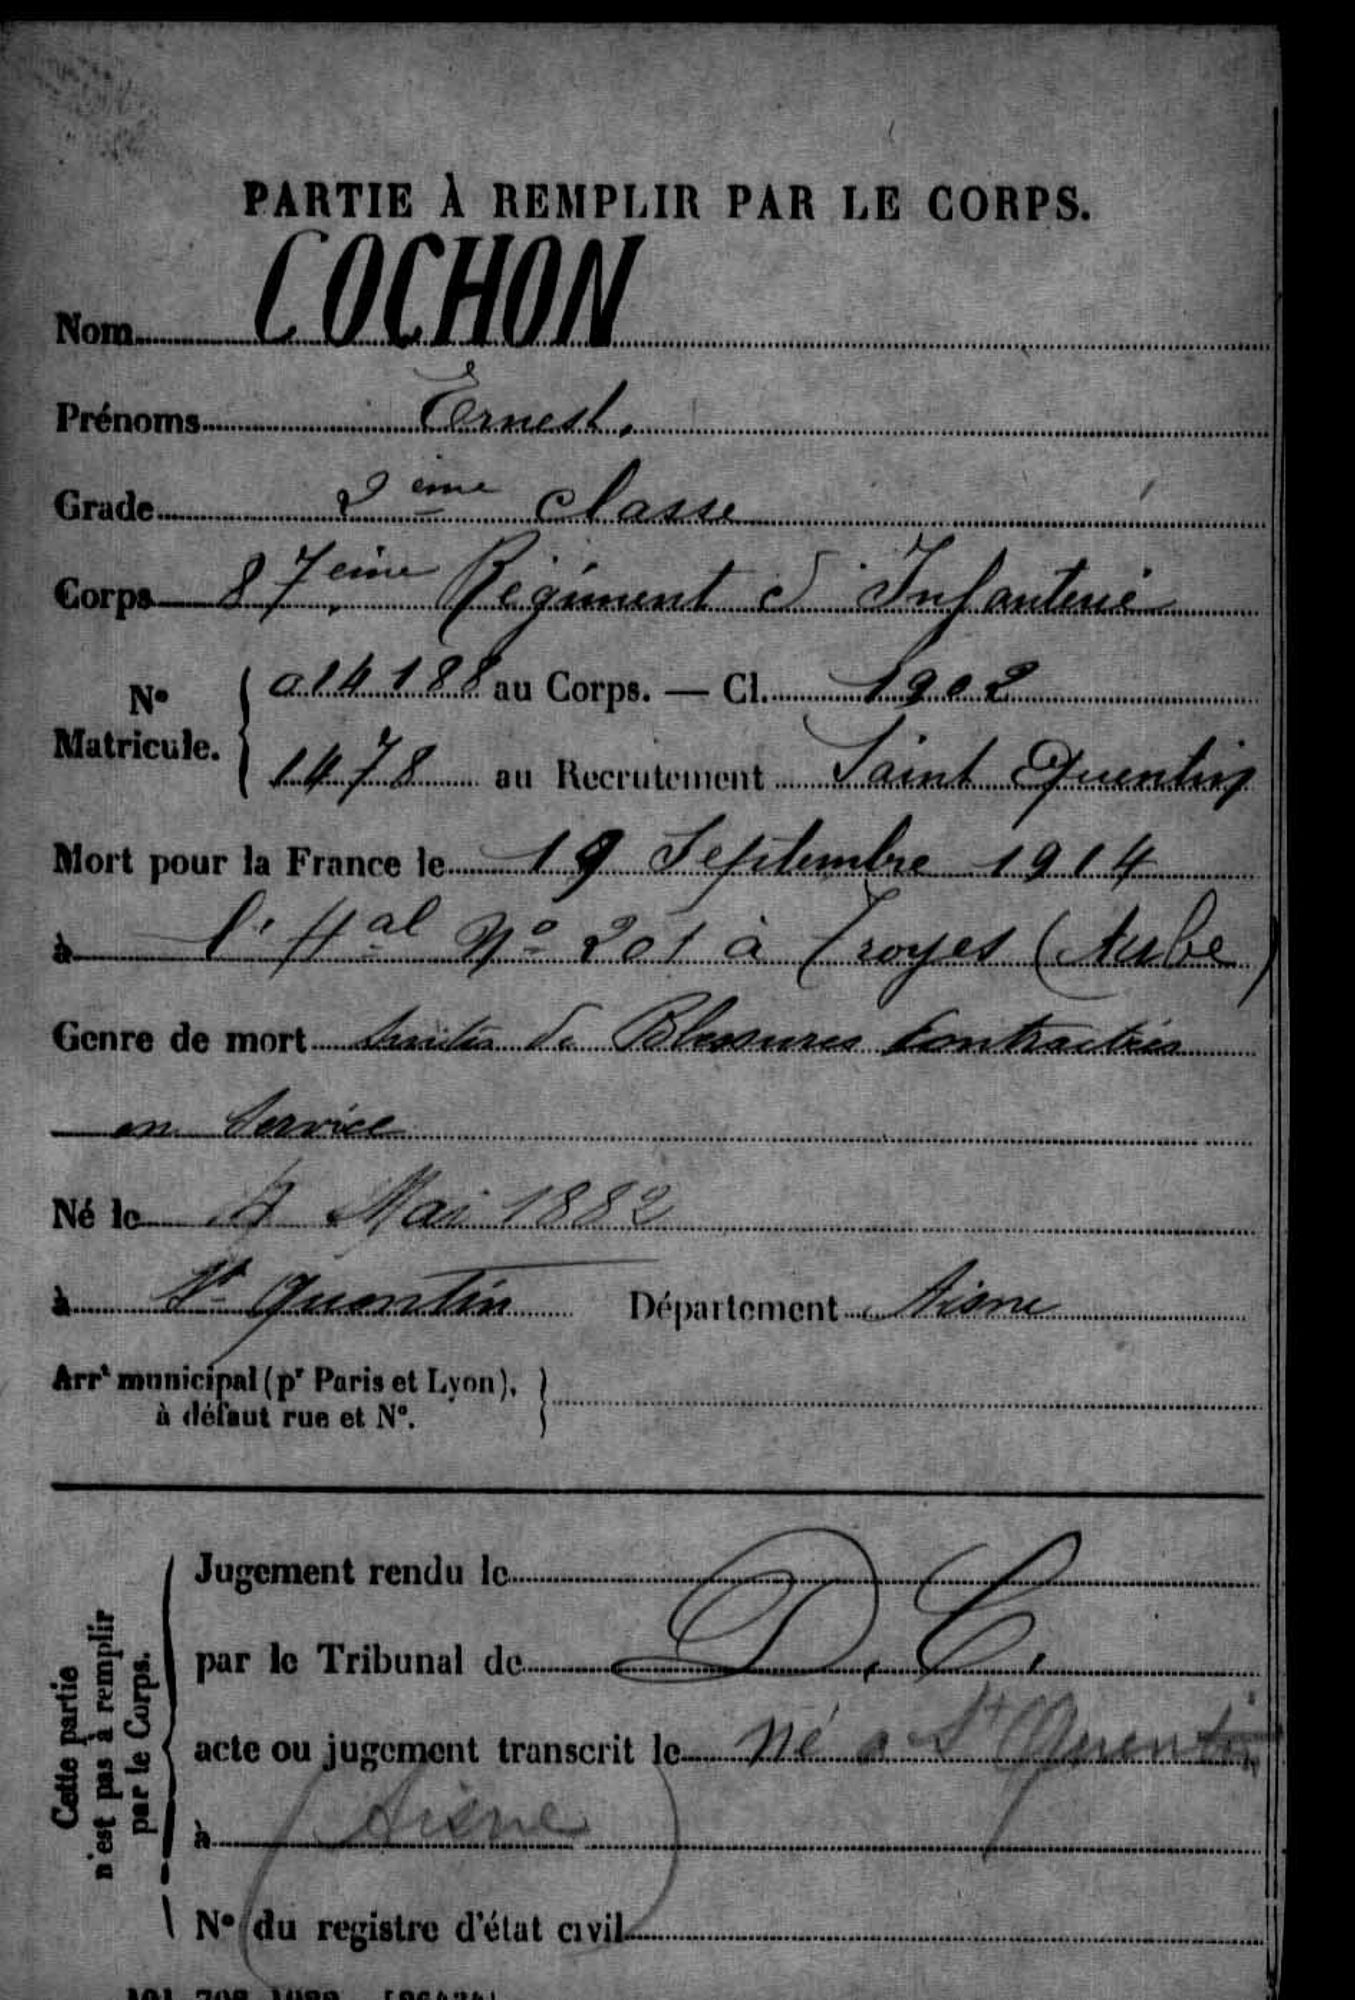 PARTIE À REMPLIR PAR LE CORPS.
Nom COCHON
Prénoms Ernest.
Grade 2ème classe
Corps 87ème Régiment d'Infanterie
No Matricule. { 014188 au Corps. — Cl. 1902
1478 au Recrutement Saint Quentin
Mort pour la France le 19 Septembre 1914
à l'Hal No 201 à Troyes (Aube)
Genre de mort Suites de Blessures Contractées
en Service
Né le Mai 1882
à St Quentin Département Aisne
Arrt municipal (pr Paris et Lyon),
à défaut rue et No. }
Cette partie
n'est pas à remplir
par le Corps.
Jugement rendu le
par le Tribunal de D. C.
acte ou jugement transcrit le Né à St Quentin
à (Aisne)
No du registre d'état civil